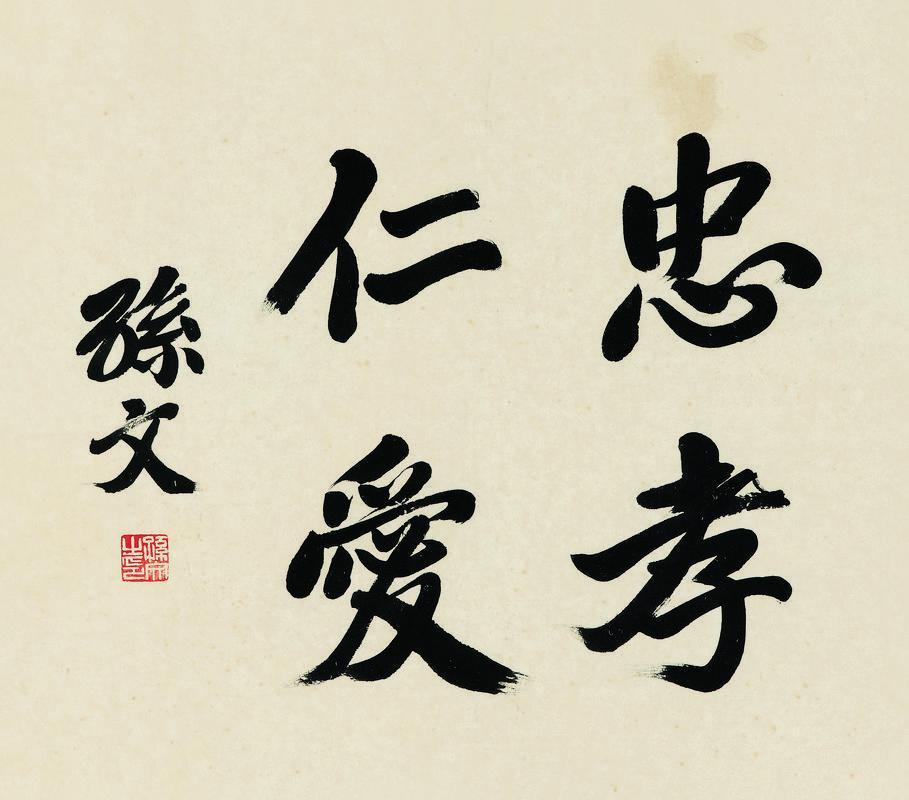 忠孝
仁愛
孫文
孫文之印